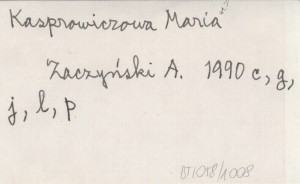 Kasprowiczowa Maria
Zaczyński A. 1990 c, g,
j, l, p